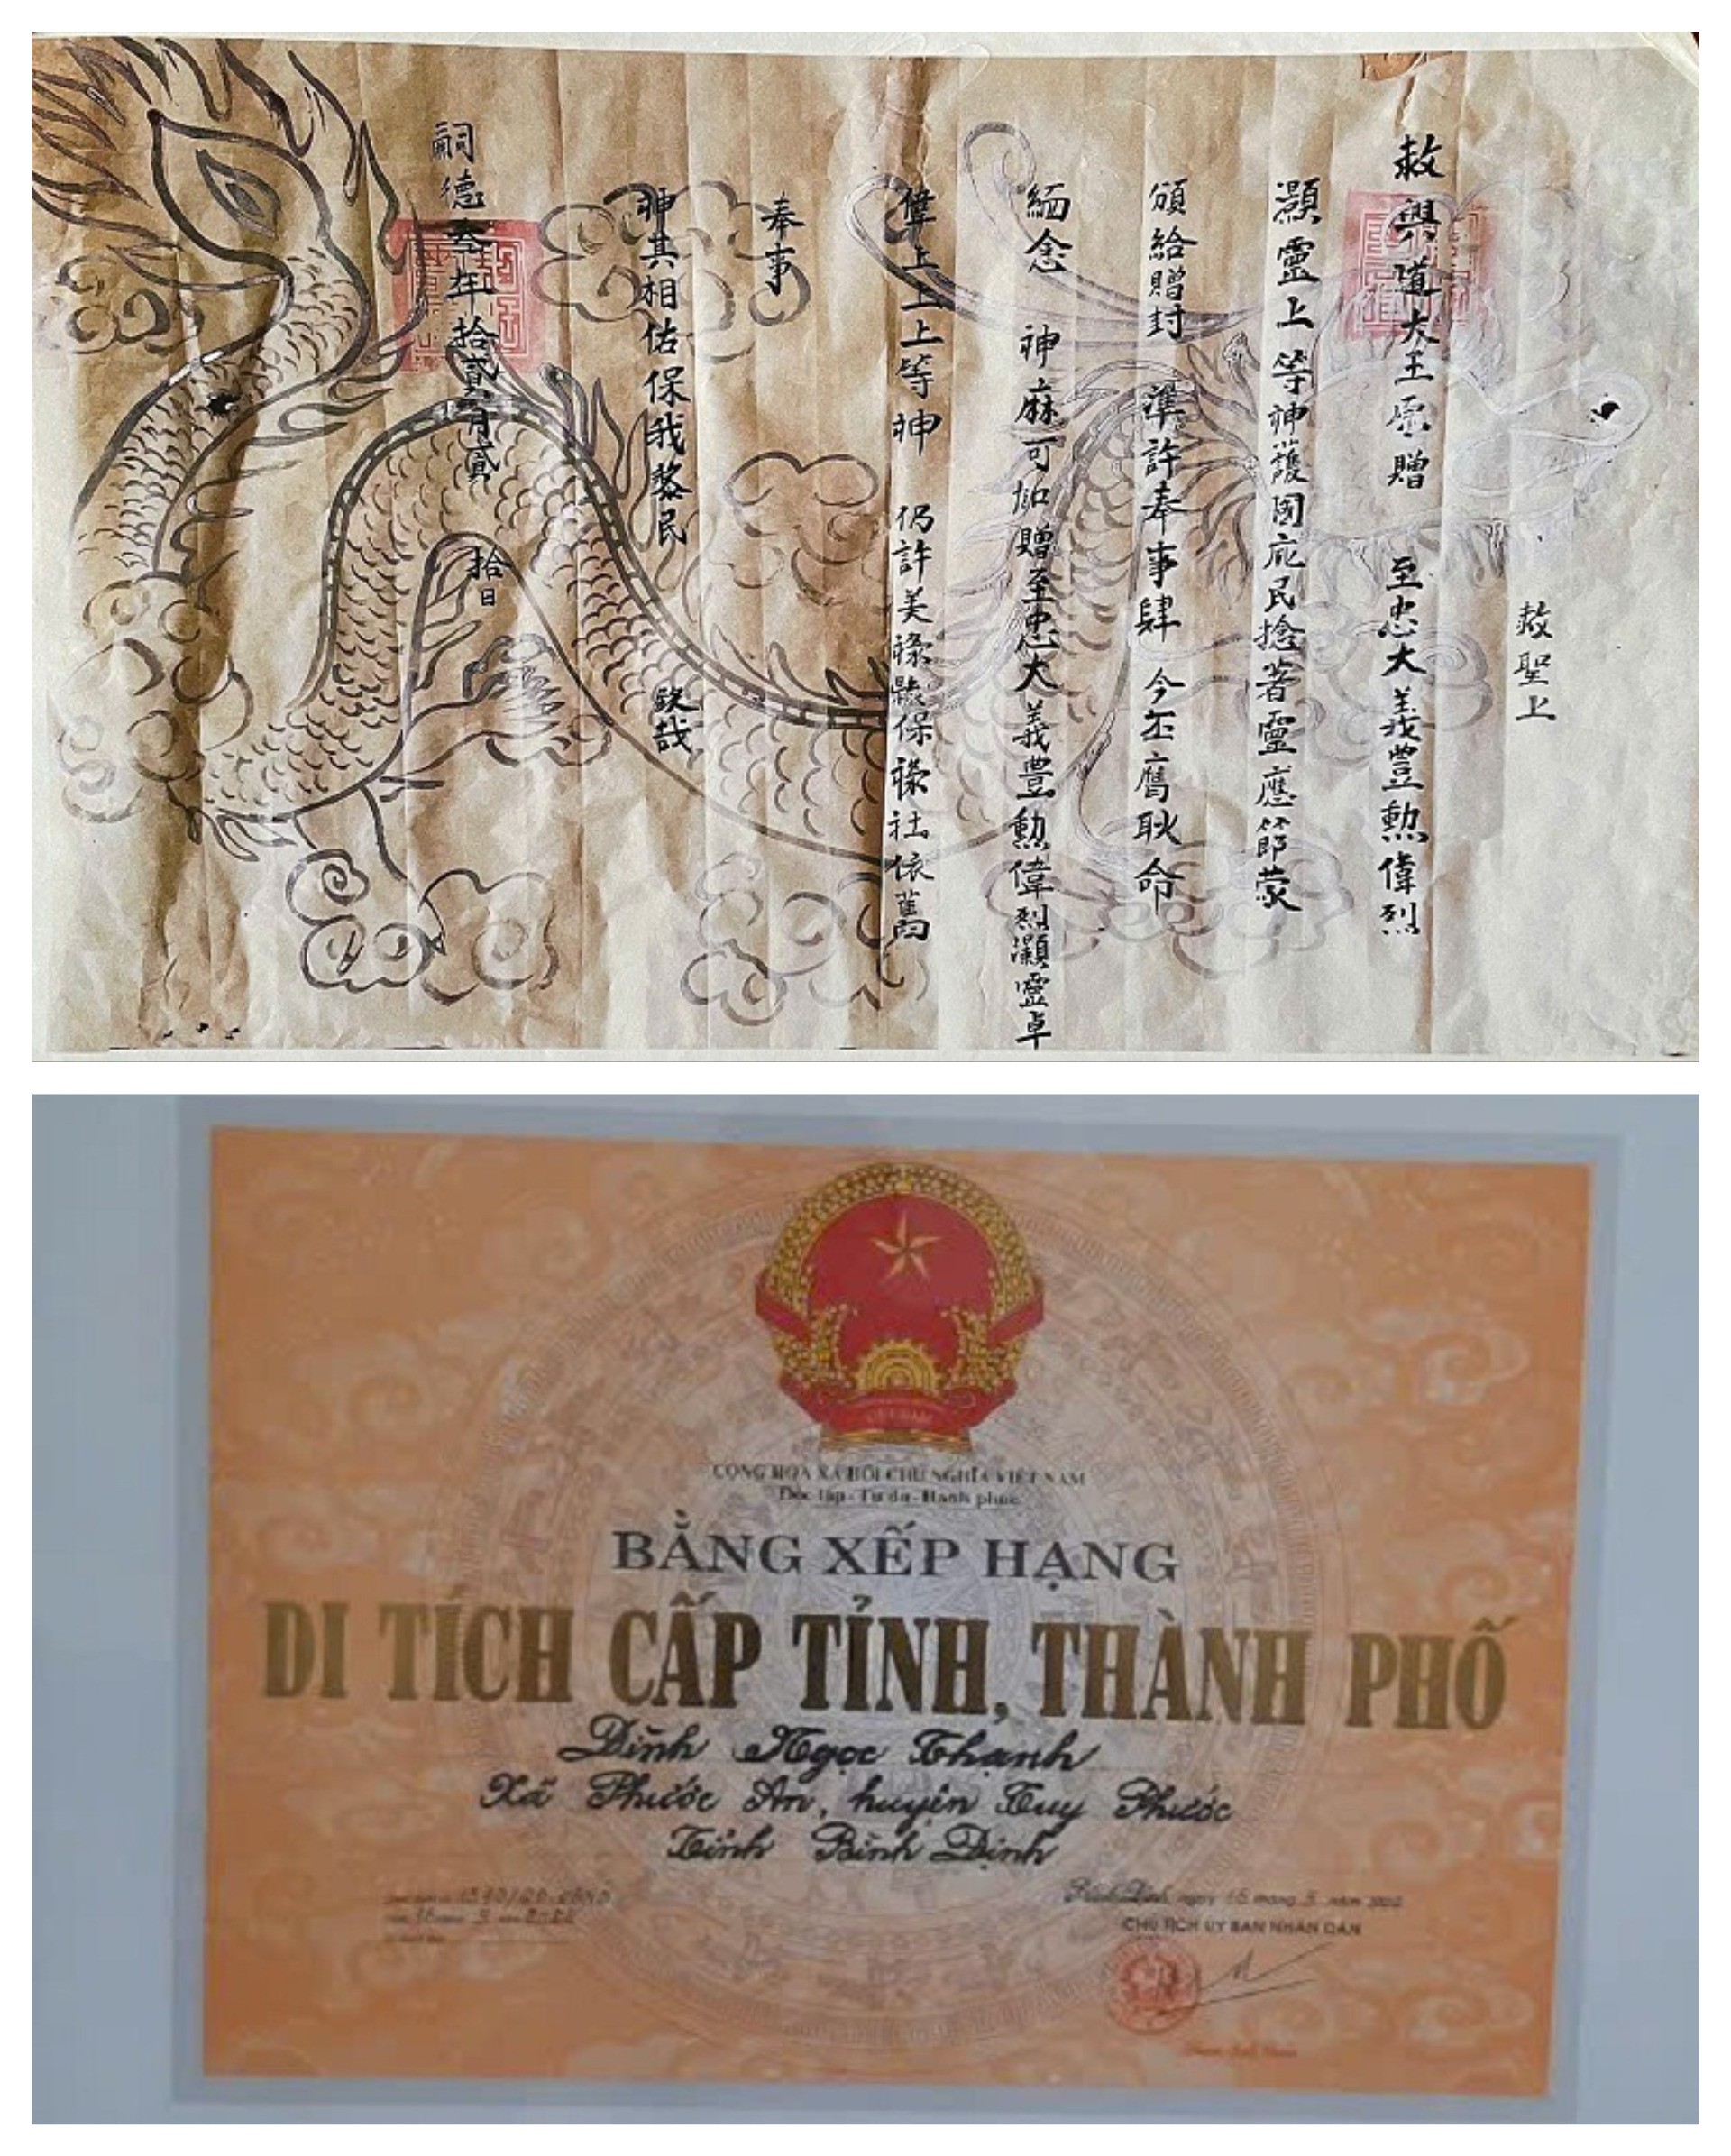 敕聖上
敕與道大王原贈 至忠大義豐勲偉烈
顯靈上等神護國庇民捻著靈應節蒙
頒給贈封 準許奉事肆 今丕膺耿命
緬念 神庥可加贈至忠大義豐勲偉烈灝靈卓
偉上上上等神 仍許美祿縣保祿社依舊
奉事
神其相佑保我黎民 欽哉
嗣德叁年拾貳月貳拾日
CỘNG HÒA XÃ HỘI CHỦ NGHĨA VIỆT NAM
Độc lập - Tự do - Hạnh phúc
BẰNG XẾP HẠNG
DI TÍCH CẤP TỈNH, THÀNH PHỐ
Đình Ngọc Thạnh
Xã Phước An, huyện Tuy Phước
Tỉnh Bình Định
Bình Định, ngày 16 tháng 5 năm
CHỦ TỊCH ỦY BAN NHÂN DÂN